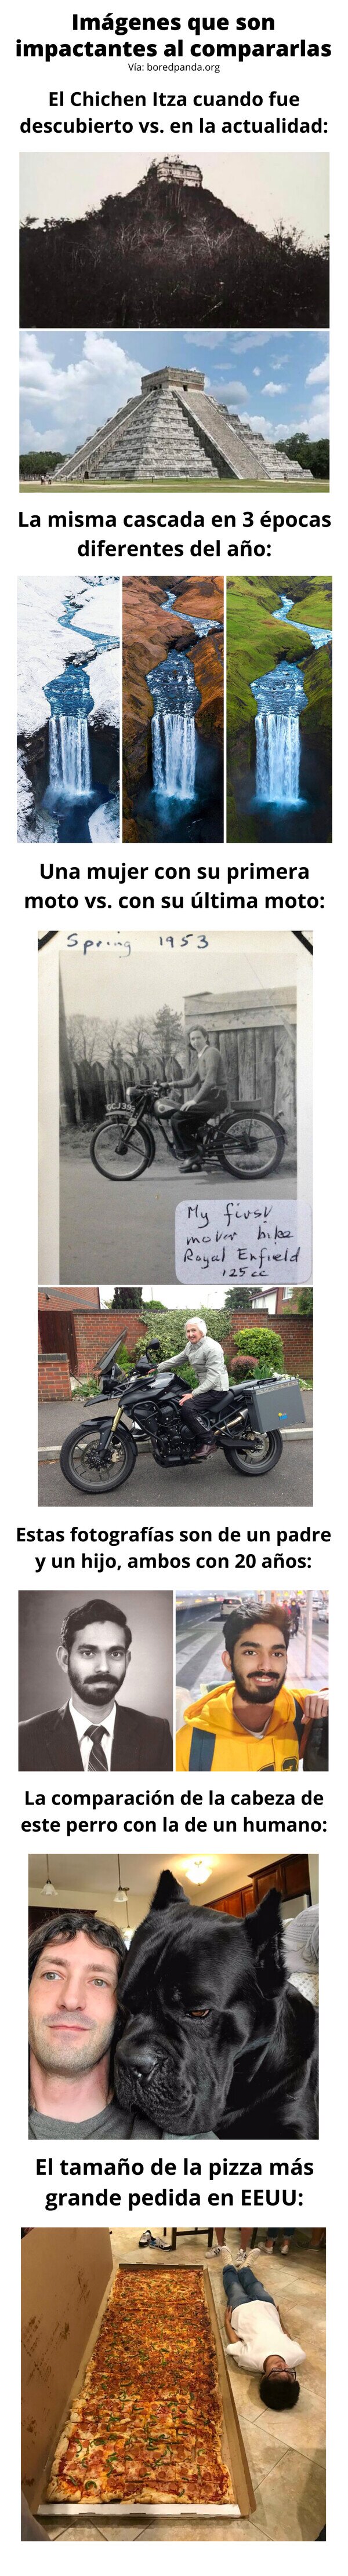 Imágenes que son
impactantes al compararlas
Vía: boredpanda.org
El Chichen Itza cuando fue
descubierto vs. en la actualidad:
La misma cascada en 3 épocas
diferentes del año:
Una mujer con su primera
moto vs. con su última moto:
Spring 1953
My first
motor bike
Royal Enfield
125 cc
Estas fotografías son de un padre
y un hijo, ambos con 20 años:
La comparación de la cabeza de
este perro con la de un humano:
El tamaño de la pizza más
grande pedida en EEUU: